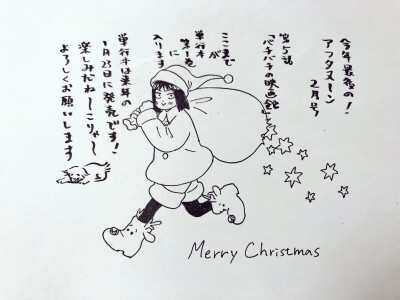 今年最後の!
アフタヌーン
2月号
第5話
「バチバチの映画館」
ここまで
が
第1巻
に
単行本
入ります
単行本は来年の
1月23日に発売です!
楽しみだね〜こりゃ〜
よろしくお願いします
Merry Christmas